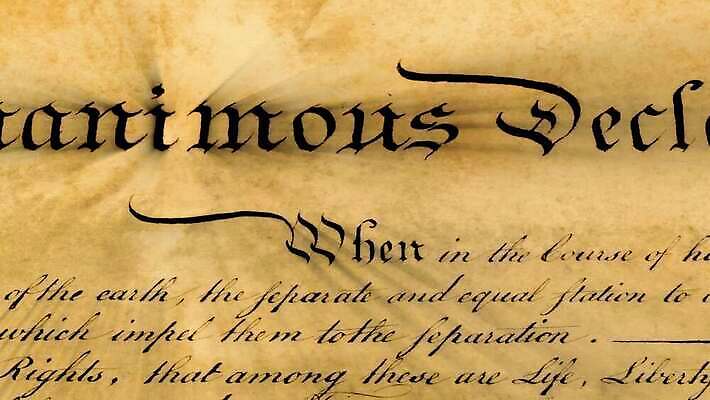 nanimous Decla
When in the Course of hu
of the earth, the ſeparate and equal ſtation to
which impel them to the ſeparation. —
Rights, that among these are Life, Liberty